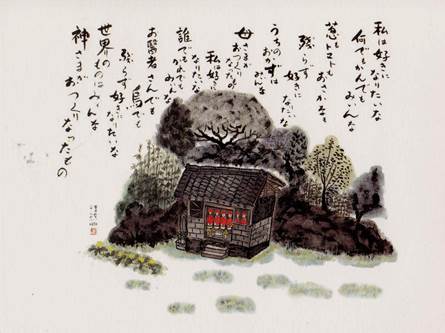 私は好きになりたいな
何でもかんでもみいんな
葱もトマトもおさかなも
残らず好きになりたいな
うちのおかずはみんな
母さまがおつくりなったもの
私は好きになりたいな
誰でもかれでもみんな
お医者さんでも烏でも
残らず好きになりたいな
世界のものはみんな
神さまがおつくりなったもの